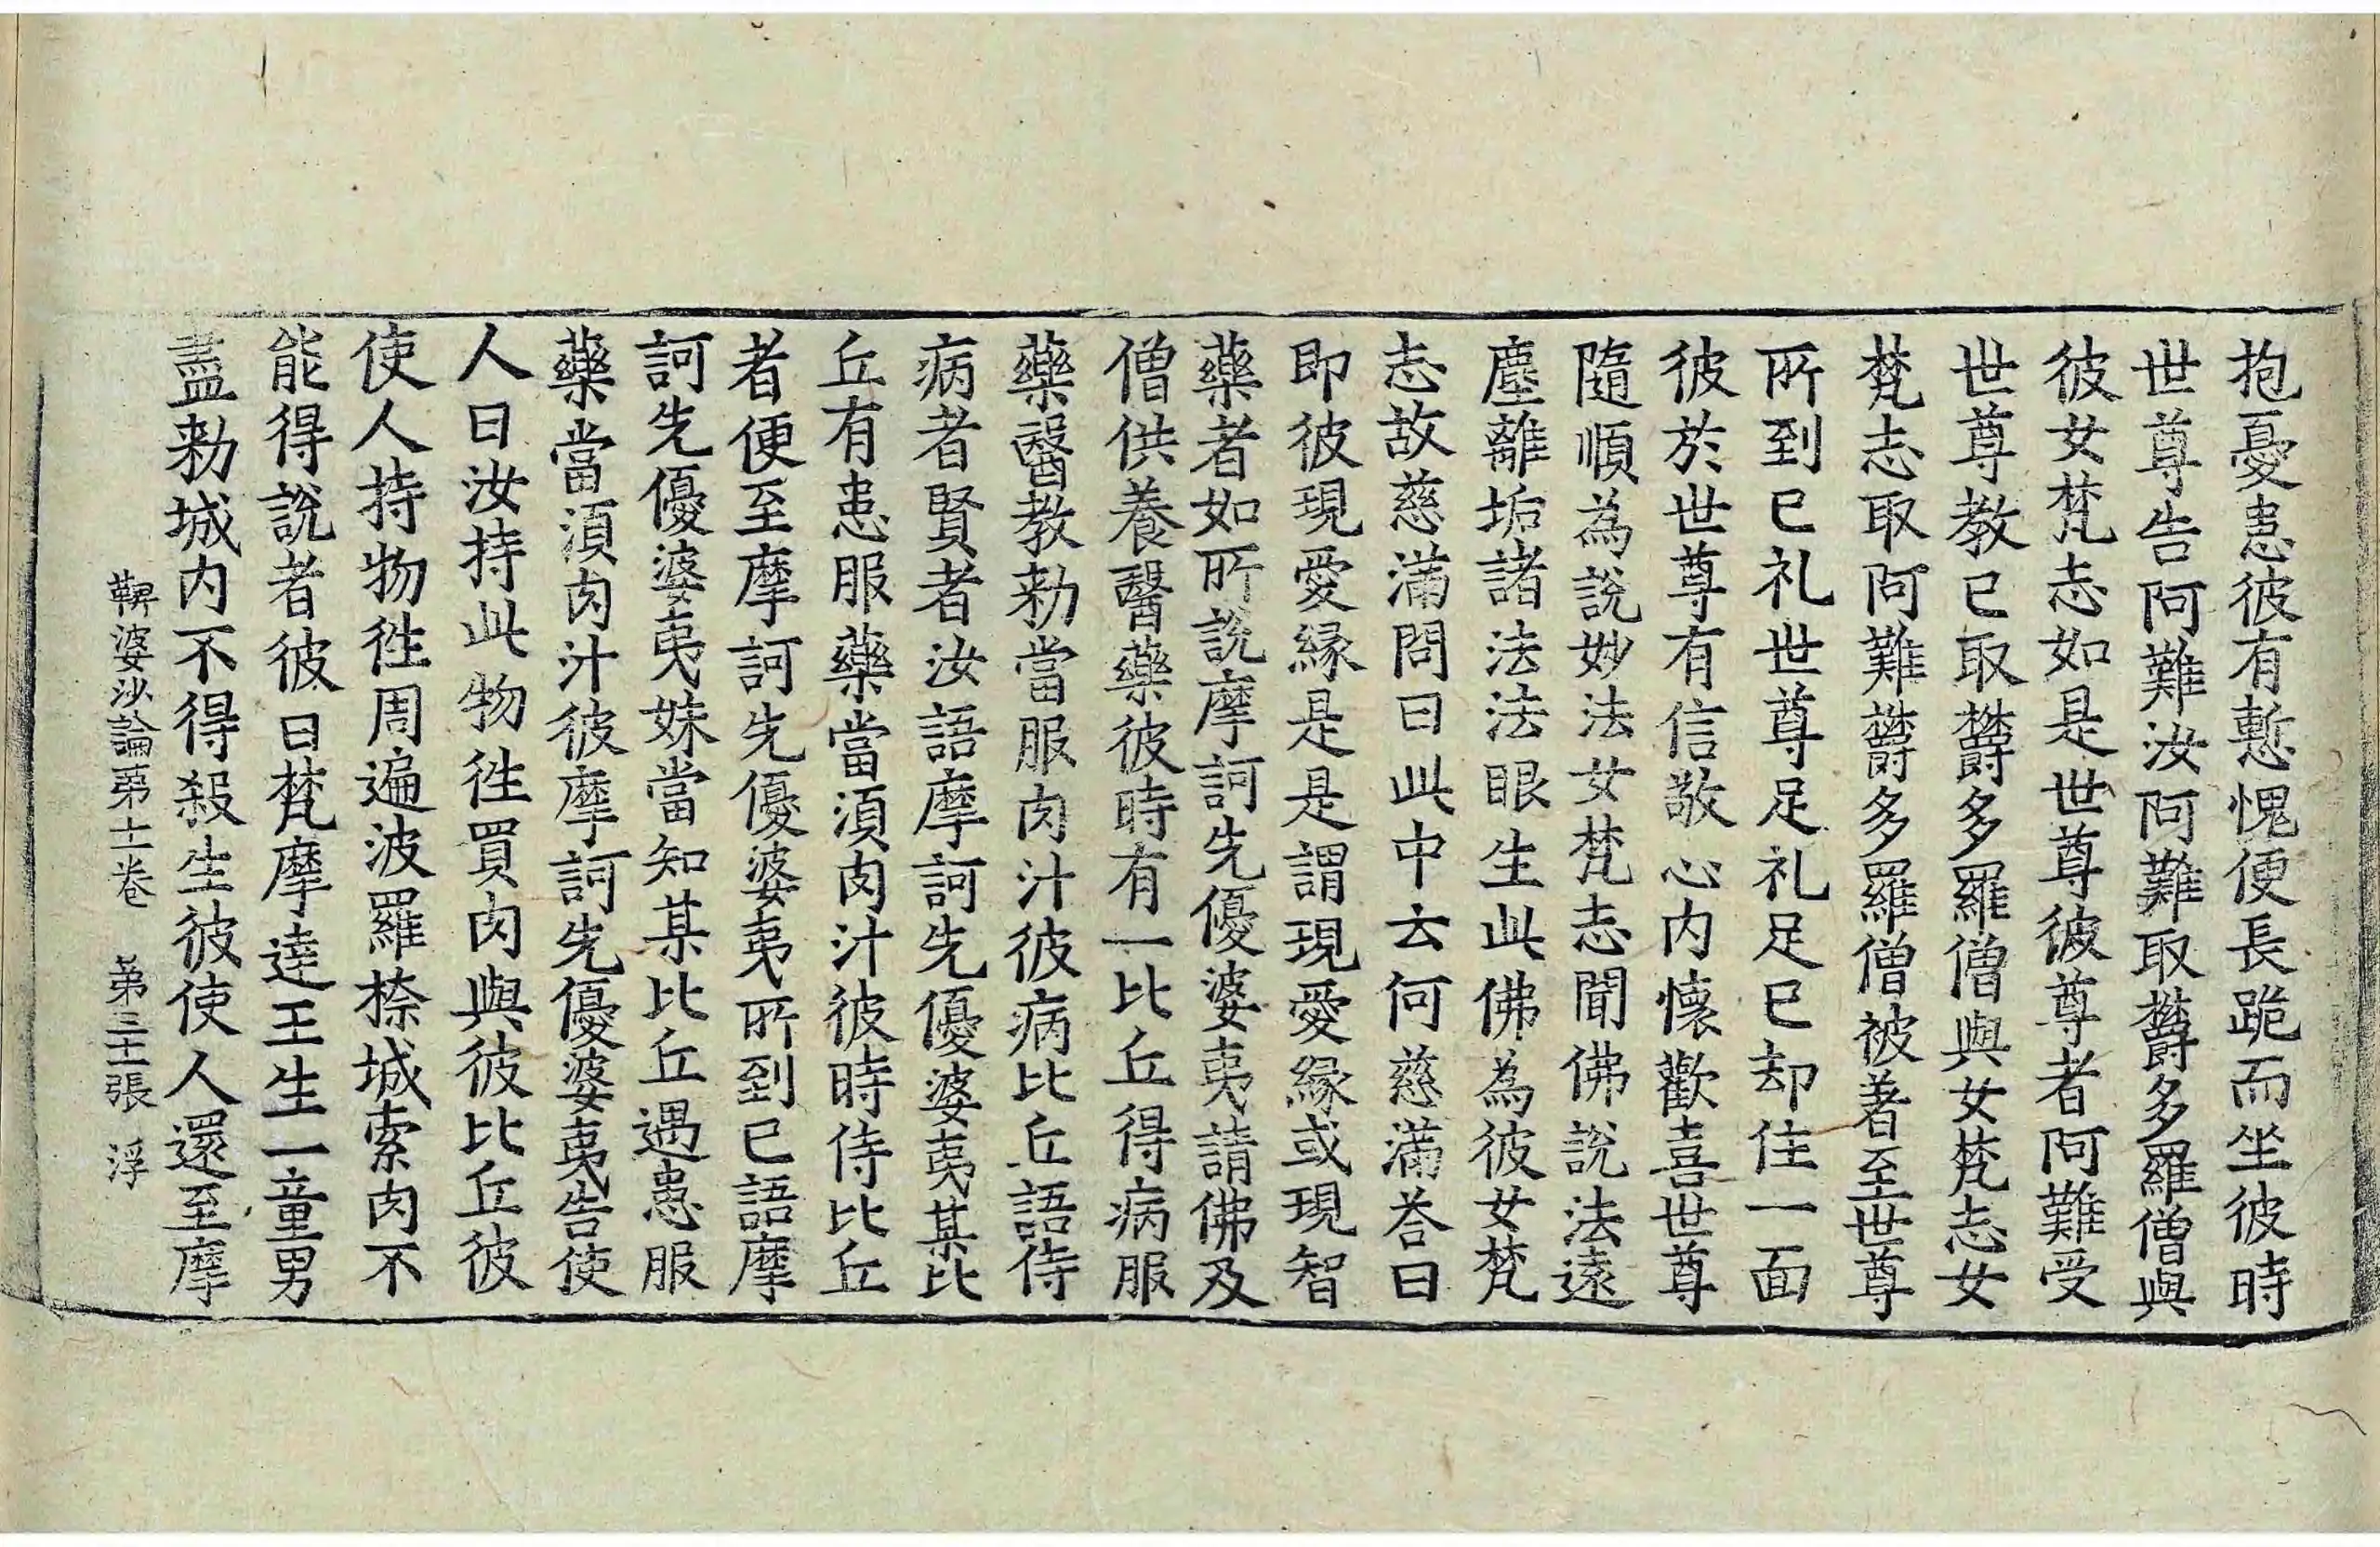 抱憂恚彼有慙愧便長跪而坐彼時
世尊告阿難汝阿難取欝多羅僧與
彼女梵志如是世尊彼尊者阿難受
世尊教已取欝多羅僧與女梵志女
梵志取阿難欝多羅僧被著至世尊
所到已礼世尊足礼足已却住一面
彼於世尊有信敬心内懷歡喜世尊
隨順為說妙法女梵志聞佛說法遠
塵離垢諸法法眼生此佛為彼女梵
志故慈滿問曰此中云何慈滿荅曰
即彼現愛緣是是謂現愛緣或現智
藥者如所說摩訶先優婆夷請佛及
僧供養醫藥彼時有一比丘得病服
藥醫教勑當服肉汁彼病比丘語侍
病者賢者汝語摩訶先優婆夷某比
丘有患服藥當湏肉汁彼時侍比丘
者便至摩訶先優婆夷所到已語摩
訶先優婆夷姝當知某比丘遇患服
藥當湏肉汁彼摩訶先優婆夷告使
人曰汝持此物徃買肉與彼比丘彼
使人持物徃周遍波羅捺城索肉不
能得說者彼曰梵摩達王生一童男
盡勑城内不得殺生彼使人還至摩
鞞婆沙論第十一卷 第三十二張 浮